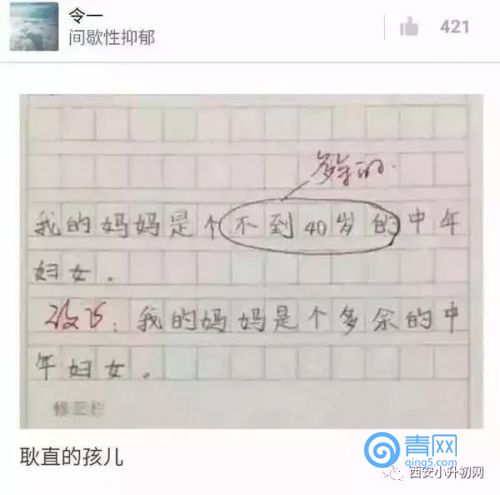 令一
间歇性抑郁
421
多余的.
我的妈妈是个不到40岁的中年
妇女。
改正:我的妈妈是个多余的中
年妇女。
修正栏
耿直的孩儿
青网
qing5.com
西安小升初网